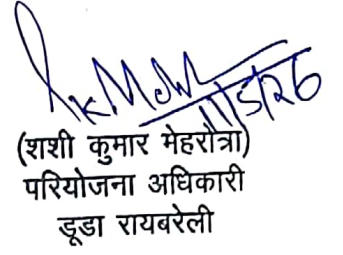 11/5/26
(शशी कुमार मेहरोत्रा)
परियोजना अधिकारी
डूडा रायबरेली